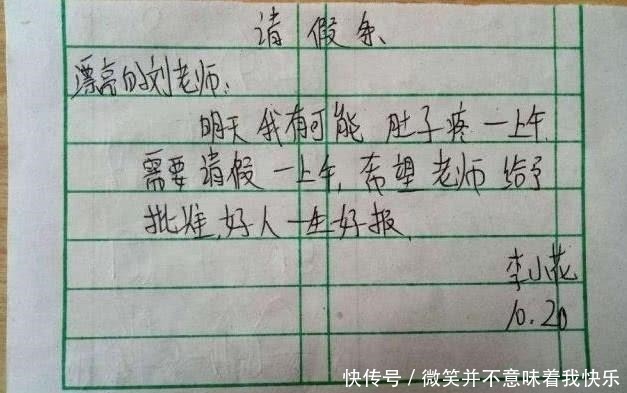 请假条
漂亮的刘老师:
明天我有可能肚子疼一上午,
需要请假一上午,希望老师给予
批准,好人一生好报,
李小花
10.20
快传号/微笑并不意味着我快乐